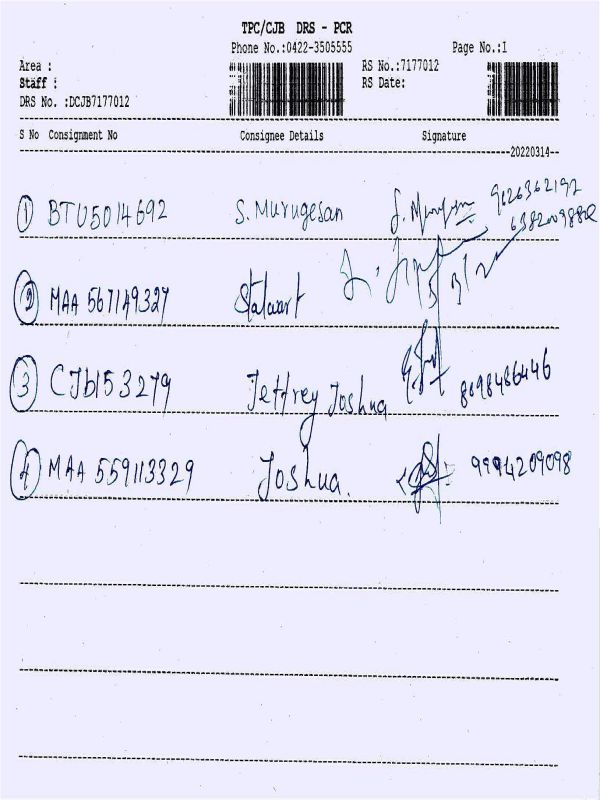 TPC/CJB DRS - PCR
Phone No.:0422-3505555 Page No.:1
Area : RS No.:7177012
Staff : RS Date:
DRS No. :DCJB7177012
S No Consignment No Consignee Details Signature
20220314
1 BTU5014692 S. Murugesan 9626362192
2 MAA 567149327 Stalwart
3 CJB153279 Jeffrey Joshua 8098486446
4 MAA 559113329 Joshua. 9994209098